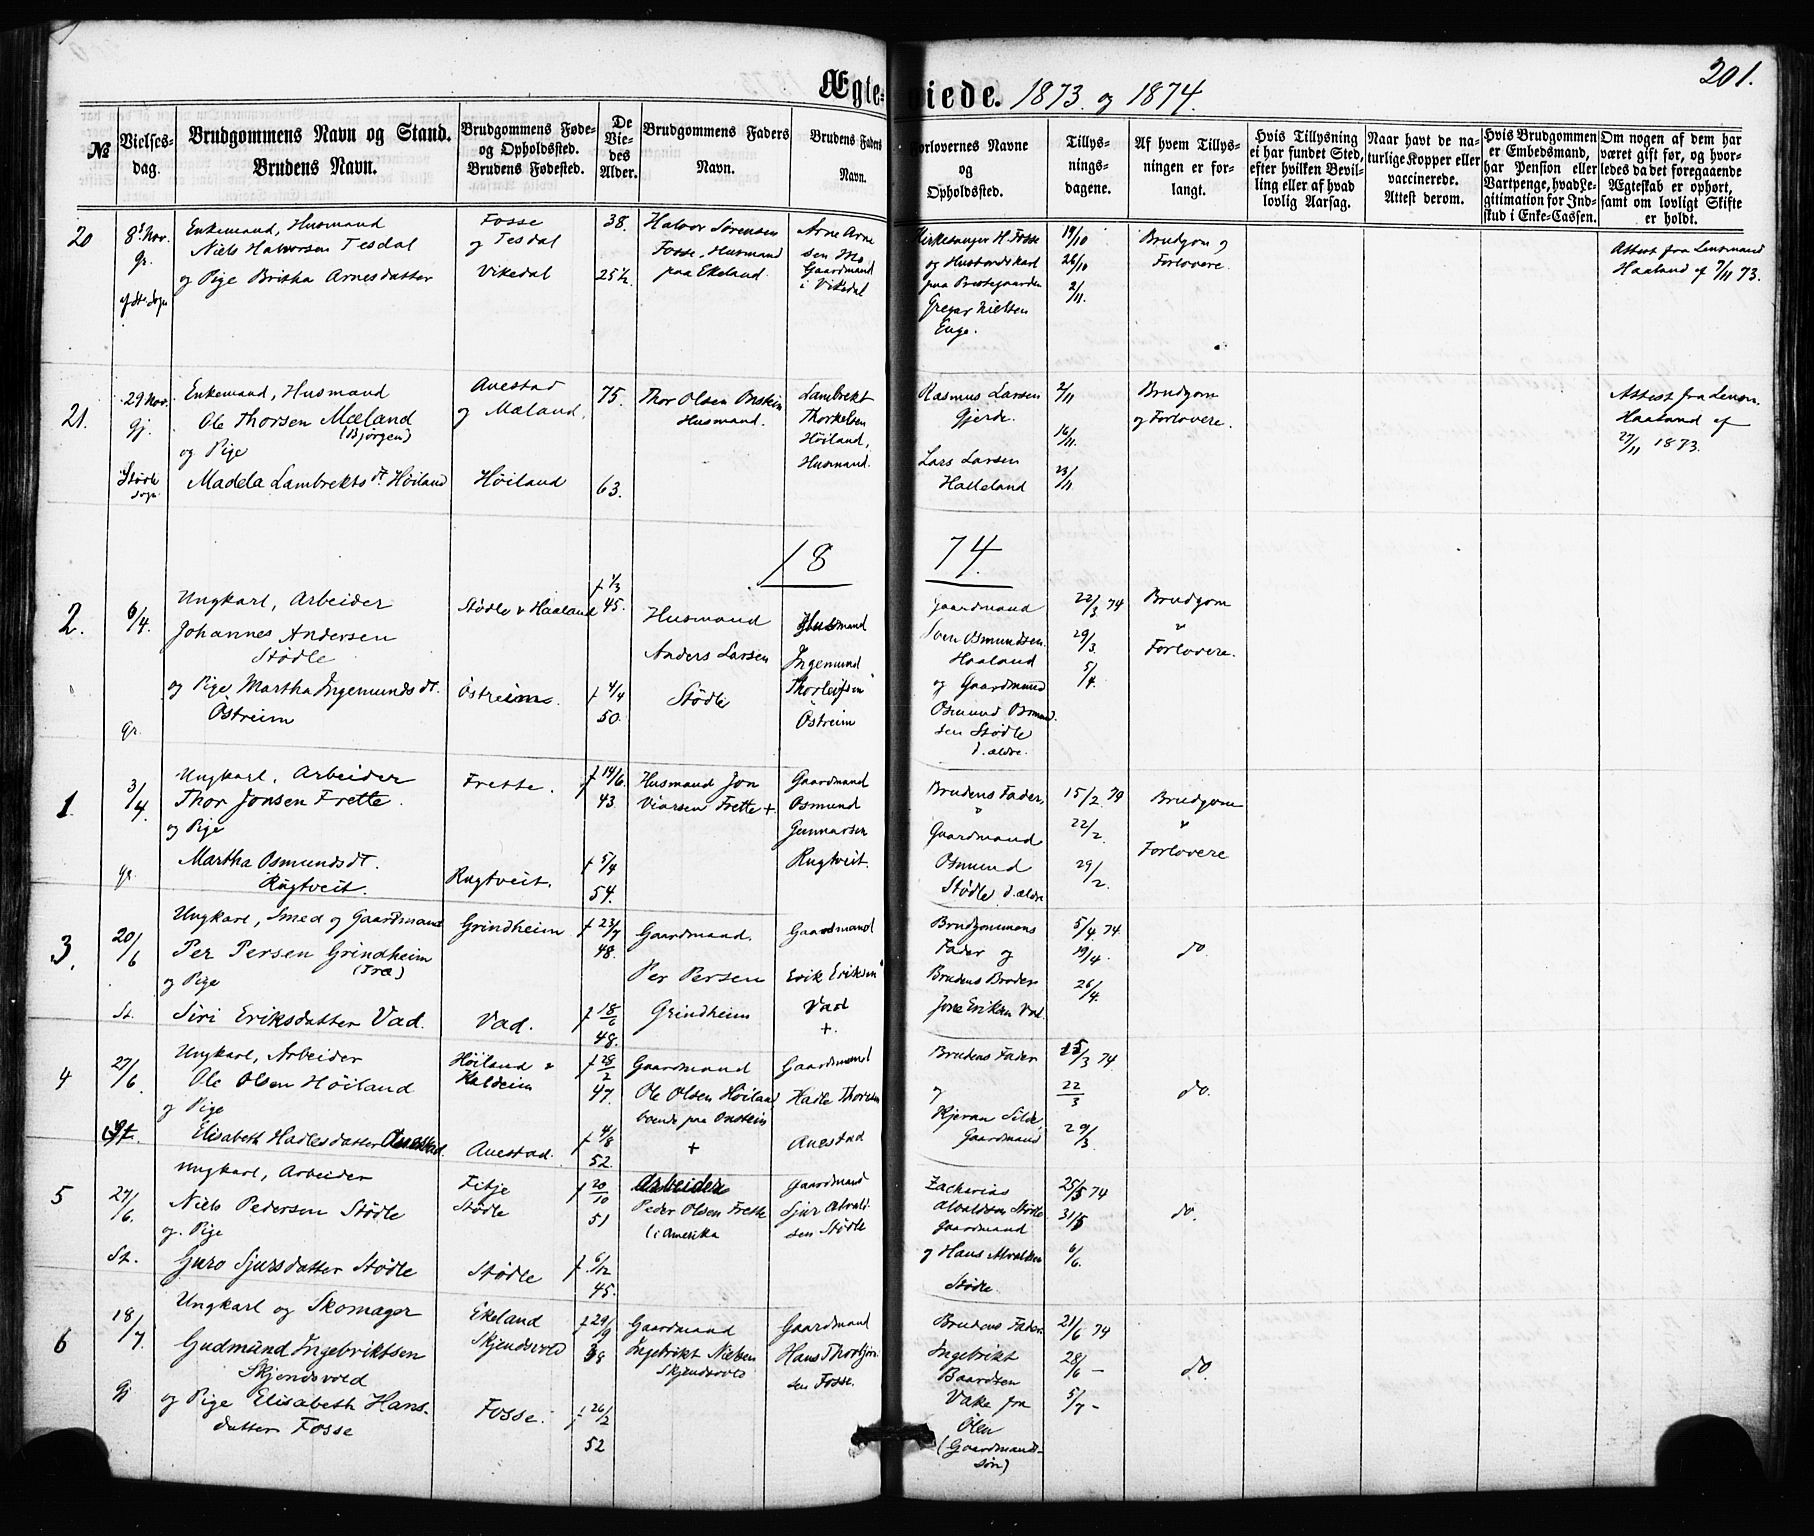 201.
Ægteviede. 1873 og 1874.
№
Vielses-dag.
Brudgommens Navn og Stand.
Brudens Navn.
Brudgommens Føde- og Opholdssted.
Brudens Fødested.
De Viedes Alder.
Brudgommens Faders Navn.
Brudens Faders Navn.
Forlovernes Navne og Opholdssted.
Tillysningsdagene.
Af hvem Tillysningen er forlangt.
Hvis Tillysning ei har fundet Sted, efter hvilken Bevilling eller af hvad lovlig Aarsag.
Naar havt de naturlige Kopper eller vaccinerede. Attest derom.
Hvis Brudgommen er Embedsmand, har Pension eller Vartpenge, hvad Legitimation for Indskud i Enke-Cassen.
Om nogen af dem har været gift før, og hvorledes da det foregaaende Ægteskab er ophørt, samt om lovligt Skifte er holdt.
20
8de Nov.
Gr.
Enkemand, Husmand
Niels Halvorsen Tesdal
og Pige Britha Arnesdatter
Fosse
og Tesdal
Vikedal
38.
25½
Halvor Sørensen
Fosse, Husmand
paa Ekeland
Arne Arne
sen Mo
Gaardmand
i Vikedal
Kirkesanger H. Fosse
og Husmandskarl
paa Præstegaarden
Gregar Nielsen
Enge.
19/10
26/10
2/11.
Brudgom og
Forlovere.
Attest fra Lensmand
Haaland af 7/11 73.
21.
29 Nov.
Gj.
Stødle
Sogn
Enkemand, Husmand
Ole Thorsen Mæland
(Bjørgen)
og Pige
Madela Lambrekts dt. Høiland
Auestad
og Mæland,
Høiland
75.
63.
Thor Olsen Onstein
Husmand.
Lambrekt
Thorkelsen
Høiland,
Husmand.
Rasmus Larsen
Gjerde.
Lars Larsen
Halleland
2/11
16/11.
23/11
Brudgom
og Forlovere.
Attest fra Lensm.
Haaland af
27/11 1873.
18 74.
2.
6/4.
Gr.
Ungkarl, Arbeider
Johannes Andersen
Stødle
og Pige Martha Ingemunds dt.
Østreim
Stødle & Haaland
Østreim.
f 1/3
45.
f 4/4
50.
Husmand
Anders Larsen
Stødle
Husmand
Ingemund
Thorleifsen
Østreim
Gaardmand
Sven Osmundsen
Haaland
og Gaardmand
Osmund Osmund
sen Stødle
d. ældre.
22/3 74
29/3.
5/4.
Brudgom
"
Forlovere.
1.
3/4.
Gr.
Ungkarl, Arbeider
Thor Jonsen Frette.
og Pige
Martha Osmunds dt.
Rugtveit.
Frette.
Rugtveit.
f 14/6
43.
f 5/4
54.
Husmand Jon
Viarsen Frette +.
Gaardmand
Osmund
Gunnarsen
Rugtveit.
Brudens Fader,
"
Gaardmand
Osmund
Stødle d. ældre
15/2. 74
22/2.
29/2.
Brudgom
"
Forlovere
3.
20/6
St.
Ungkarl, Smed og Gaardmand
Per Persen Grindheim
(Træ)
og Pige
Siri Eriksdatter Vad.
Grindheim.
Vad.
f 23/7
48.
f 18/6
48.
Gaardmand.
Per Persen
Grindheim
Gaardmand
Erik Eriksen
Vad
+.
Brudgommens
Fader og
Brudens Broder
Jone Eriksen Vad.
5/4. 74.
19/4.
26/4.
do.
4
27/6.
St.
Ungkarl, Arbeider
Ole Olsen Høiland
og Pige
Elisabeth Hadlesdatter Auestad.
Høiland &
Haldeim
Auestad.
f 28/2
47.
f 4/8
52.
Gaardmand
Ole Olsen Høiland
boende paa Onstein
+
Gaardmand
Hadle Thorsen
Auestad
Brudens Fader
og
Kjeran Silde,
Gaardmand
15/3 74
22/3
29/3
do.
5
27/6.
St.
Ungkarl, Arbeider
Niels Pedersen Stødle
og Pige
Guro Sjursdatter Stødle
Fitje
Stødle
Stødle
f 20/10
51
f 6/12
45.
Arbeider
Peder Olsen Frette
(i Amerika
Gaardmand
Sjur Alvald
sen Stødle
Zacharias
Alvaldsen Stødle
Gaardmand
og Hans Alvaldsen
Stødle.
25/5 74
31/5
6/6.
do.
6
18/7.
Gj
Ungkarl og Skomager
Gudmund Ingebriktsen
Skjendsvold
og Pige Elisabeth Hans-
datter Fosse
Ekeland
Skjendsvold
Fosse.
f 29/9
39
f 26/2
52
Gaardmand
Ingebrikt Nielsen
Skjendsvold
Gaardmand
Hans Thorbjørn
sen Fosse.
Brudens Fader
Ingebrikt
Baardsen
Vake fra
Ølen
(Gaardmands-
søn)
21/6 74
28/6 –
5/7 –
do.